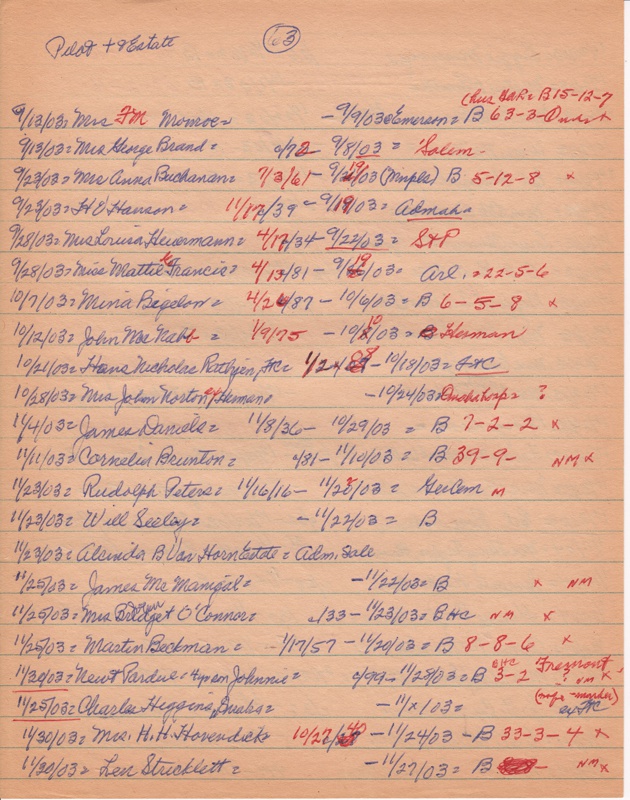 Pilot + & Estate 103
Chris B15-12-7
9/13/03= Mrs FM Monroe= - 9/9/03 Emerson= B 63-3-
9/13/03= Mrs George Brand= 9/8/03 = Salem-
9/23/03= Mrs Anna Buchanan= 7/3/61- 9/ /03 (Mnpls) B 5-12-8 x
9/23/03= H E Hanson= 11/17/39 - 9/19/03= Admah
9/28/03= Mrs Louisa Heuermann= 4/17/34 - 9/22/03 = S+P
9/28/03= Miss Mattie Francis= 4/13/81 - 9/ /03= Arl. = 22-5-6
10/7/03= Mina Bigelow= 4/26/87 - 10/6/03= B 6-5-8 x
10/12/03= John Mac Nabb = 1/9/75 - 10/10/03= Herman
10/21/03= Hans Nicholas Rathjen, FtC= 1/24/ - 10/18/03= FtC
10/28/03= Mrs John Norton, ex Herman - 10/24/03= Omaha hosp= ?
11/4/03= James Daniels= 11/8/36- 10/29/03 = B 7-2-2 x
11/11/03= Cornelia Brunton= /81- 11/10/03= B 39-9- NM x
11/23/03= Rudolph Peters= 11/16/16- 11/2 /03= GerCem M
11/23/03= Will Seeley= - 11/22/03= B
11/23/03= Alcinda B Van Horn Estate= Adm. Sale
11/25/03= James Mc Manigal= - 11/22/03= B x NM
11/25/03= Mrs Bridget O'Connor= /33- 11/23/03= BHC NM x
11/25/03= Martin Beckman= 1/17/57 - 11/20/03= B 8-8-6 x
11/30/03= Newt Pardue- Johnnie= - 11/28/03= B BHC 3-2 Fremont ? NM x
11/25/03= Charles Higgins, = - 11/x/03= (nofo-murder) ex FtC
11/30/03= Mrs. H. H. Hovendick= 10/27/40 - 11/24/03 - B 33-3-4 x
11/30/03= Len Stricklett= - 11/27/03= B - NM x